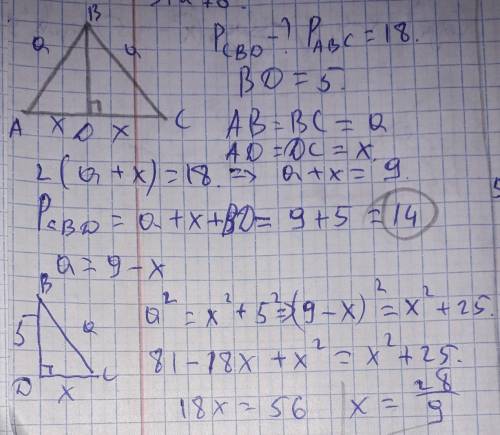 B
a a
A x D x C
P_CBD - ? P_ABC = 18.
BD = 5.
AB = BC = a
AD = DC = x.
2(a + x) = 18. => a + x = 9.
P_CBD = a + x + BD = 9 + 5 = 14
a = 9 - x
B
5 a
D x C
a² = x² + 5² => (9 - x)² = x² + 25.
81 - 18x + x² = x² + 25.
18x = 56 x = 28/9